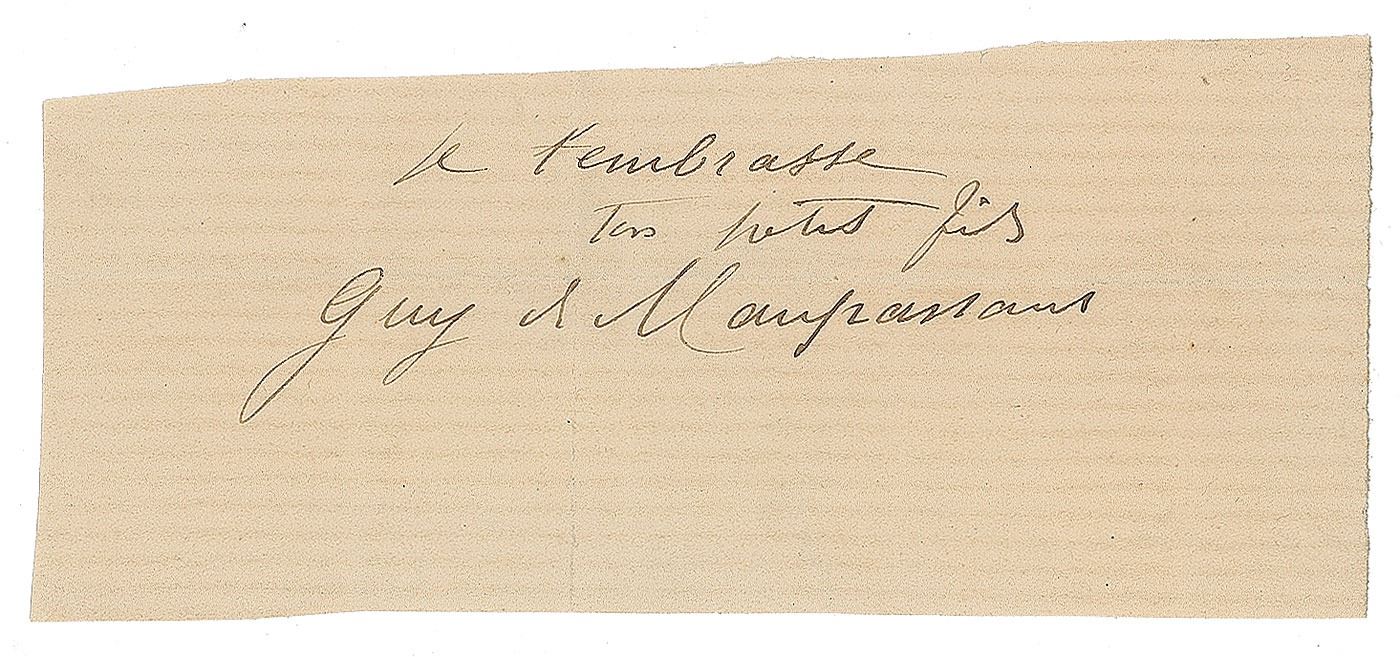 Je t'embrasse
Ton petit fils
Guy de Maupassant